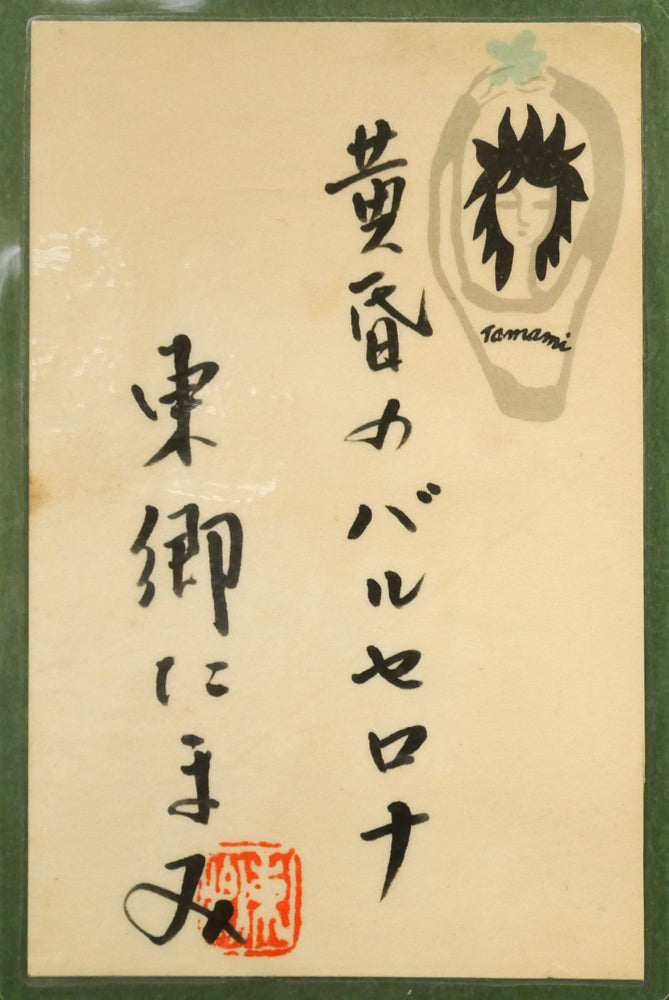 黄昏のバルセロナ
東郷たまみ
Tamami